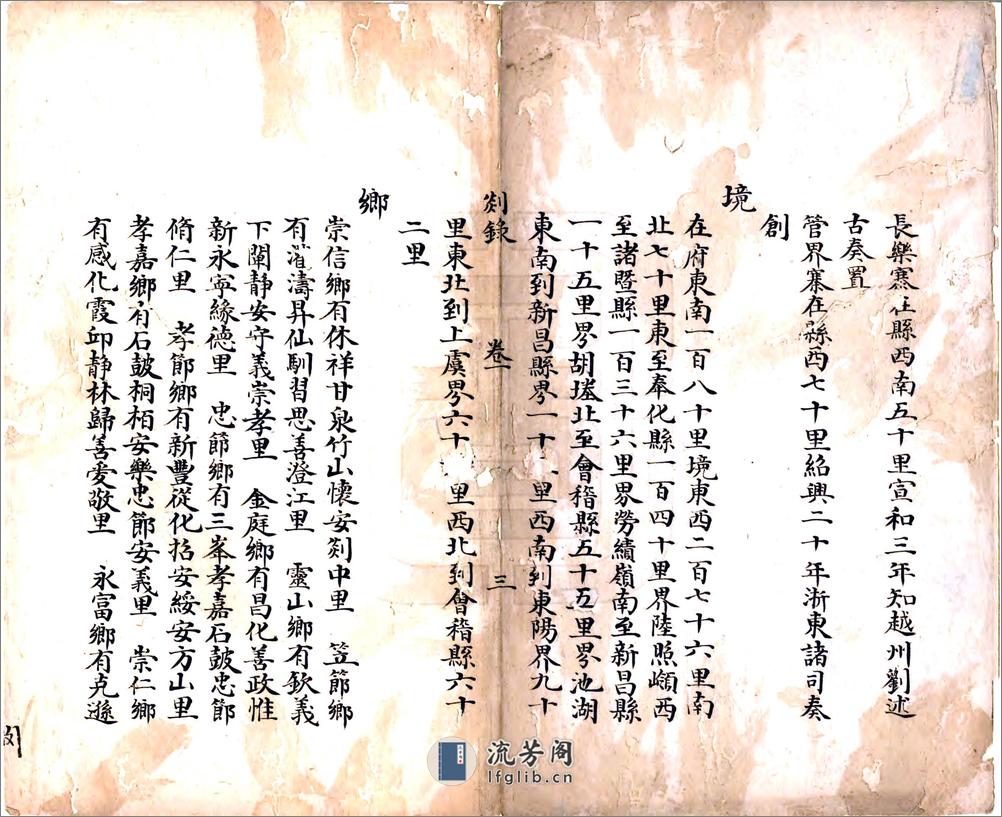 長樂寨在縣西南五十里宣和三年知越州劉述
古奏置
管界寨在縣西七十里紹興二十年浙東諸司奏
創
境
在府東南一百八十里境東西二百七十六里南
北七十里東至奉化縣一百四十里界陸照嶺西
至諸暨縣一百三十六里界勞績嶺南至新昌縣
一十五里界胡墜北至會稽縣五十五里界池湖
東南到新昌縣界一十里西南到東陽界九十
里東北到上虞界六十里西北到會稽縣六十
二里
剡錄 卷一 三
鄉
崇信鄉有休祥甘泉竹山懷安剡中里 笠節鄉
有濤昇仙馴習思善澄江里 靈山鄉有欽義
下闈靜安守義崇孝里 金庭鄉有昌化善政惟
新永寧緣德里 忠節鄉有三峯孝嘉石鼓忠節
脩仁里 孝節鄉有新豐從化招安綏安方山里
孝嘉鄉有石鼓桐栢安樂忠節安義里 崇仁鄉
有感化霞邱靜林歸善愛敬里 永富鄉有克遜
流芳阁
lfglib.cn